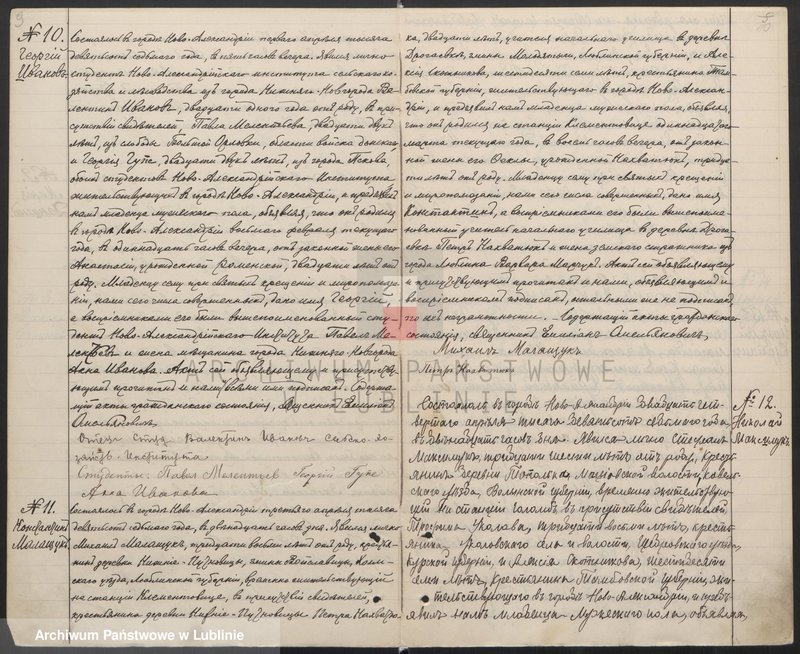 9
№ 10.
Георгій
Ивановъ
Состоялось въ городѣ Ново-Александріи перваго апрѣля тысяча
девятьсотъ седьмого года, въ пять часовъ вечера. Явился лично
студентъ Ново-Александрійскаго института сельскаго хо-
зяйства и лѣсоводства изъ города Нижняго-Новгорода Ва-
лентинъ Ивановъ, двадцати одного года отъ роду, въ при-
сутствіи свидѣтелей, Павла Мелентьева, двадцати двухъ
лѣтъ, изъ слободы Большой Орловки, области войска донского
и Георгія Гупе, двадцати двухъ лѣтъ, изъ города Пскова,
обоихъ студентовъ Ново-Александрійскаго Института
жительствующихъ въ городѣ Ново-Александріи, и предъявилъ
намъ младенца мужескаго пола, объявляя, что онъ родился
въ городѣ Ново-Александріи восьмого февраля текущаго
года, въ одиннадцать часовъ вечера, отъ законной жены его
Анастасіи, урожденной двадцати лѣтъ отъ
роду. Младенцу сему при святомъ крещеніи и муропомаза-
ніи, нами сего числа совершенномъ, дано имя Георгій,
а воспріемниками его были вышепоименованный сту-
дентъ Ново-Александрійскаго Института Павелъ Ме-
лентьевъ и жена мѣщанина города Нижняго-Новгорода
Анна Иванова. Актъ сей объявляющему и присутству-
ющимъ прочитанъ и нами, всѣми ими подписанъ. Содержа-
щій акты гражданскаго состоянія, священникъ Емиліанъ
Амельяновичъ.
Отецъ Студ. Валентинъ Ивановъ Сельско-хо-
зяйств. Института
Студенты: Павелъ Мелентьевъ Георгій Гупе
Анна Иванова
№ 11.
Константинъ
Малащукъ
Состоялось въ городѣ Ново-Александріи третьяго апрѣля тысяча
девятьсотъ седьмого года, въ двѣнадцать часовъ дня. Явился лично
Михаилъ Малащукъ, тридцати восьми лѣтъ отъ роду, крестья-
нинъ деревни гмины Войславицы, Холм-
скаго уѣзда, Люблинской губерніи, временно жительствующій
на станціи Клементовице, въ присутствіи свидѣтелей,
крестьянина деревни Петра Нахватю-
ка, двадцати лѣтъ, учителя начальнаго училища въ деревнѣ
гмины Люблинской губерніи, и Але-
ксія Скотникова, шестидесяти семи лѣтъ, крестьянина Там-
бовской губерніи, жительствующаго въ городѣ Ново-Алексан-
дріи, и предъявилъ намъ младенца мужескаго пола, объявляя,
что онъ родился на станціи Клементовице одиннадцатаго
марта текущаго года, въ восемь часовъ вечера, отъ закон-
ной жены его Ѳеклы, урожденной Нахватюкъ, тридца-
ти лѣтъ отъ роду. Младенцу сему при святомъ крещеніи
и муропомазаніи, нами сего числа совершенномъ, дано имя
Константинъ, а воспріемниками его были вышепоиме-
нованный учитель начальнаго училища въ деревнѣ
Петръ Нахватюкъ и жена земскаго стражника изъ
города Люблина Варвара Актъ сей объявляющему
и присутствующимъ прочитанъ и нами, объявляющимъ и
воспріемникомъ подписанъ, остальными же не подписанъ,
по ихъ неграмотности. Содержащій акты гражданскаго
состоянія, священникъ Емиліанъ Амельяновичъ.
Михаилъ Малащукъ
Петръ Нахватюкъ
№ 12.
Николай
Максимукъ
Состоялось въ городѣ Ново-Александріи двадцать чет-
вертаго апрѣля тысяча девятьсотъ седьмого года,
въ двѣнадцать часовъ дня. Явился лично Степанъ
Максимукъ, тридцати шести лѣтъ отъ роду, кресть-
янинъ деревни волости, Ковель-
скаго уѣзда, Волынской губерніи, временно жительствую-
щій на станціи въ присутствіи свидѣтелей,
тридцати восьми лѣтъ, кресть-
янина, села и волости, Щигровскаго уѣзда,
Курской губерніи, и Алексія Скотникова, шестидесяти
семи лѣтъ, крестьянина Тамбовской губерніи, жи-
тельствующаго въ городѣ Ново-Александріи, и предъ-
явилъ намъ младенца мужескаго пола, объявляя,
ARCHIWUM PAŃSTWOWE
W LUBLINIE
Archiwum Państwowe w Lublinie